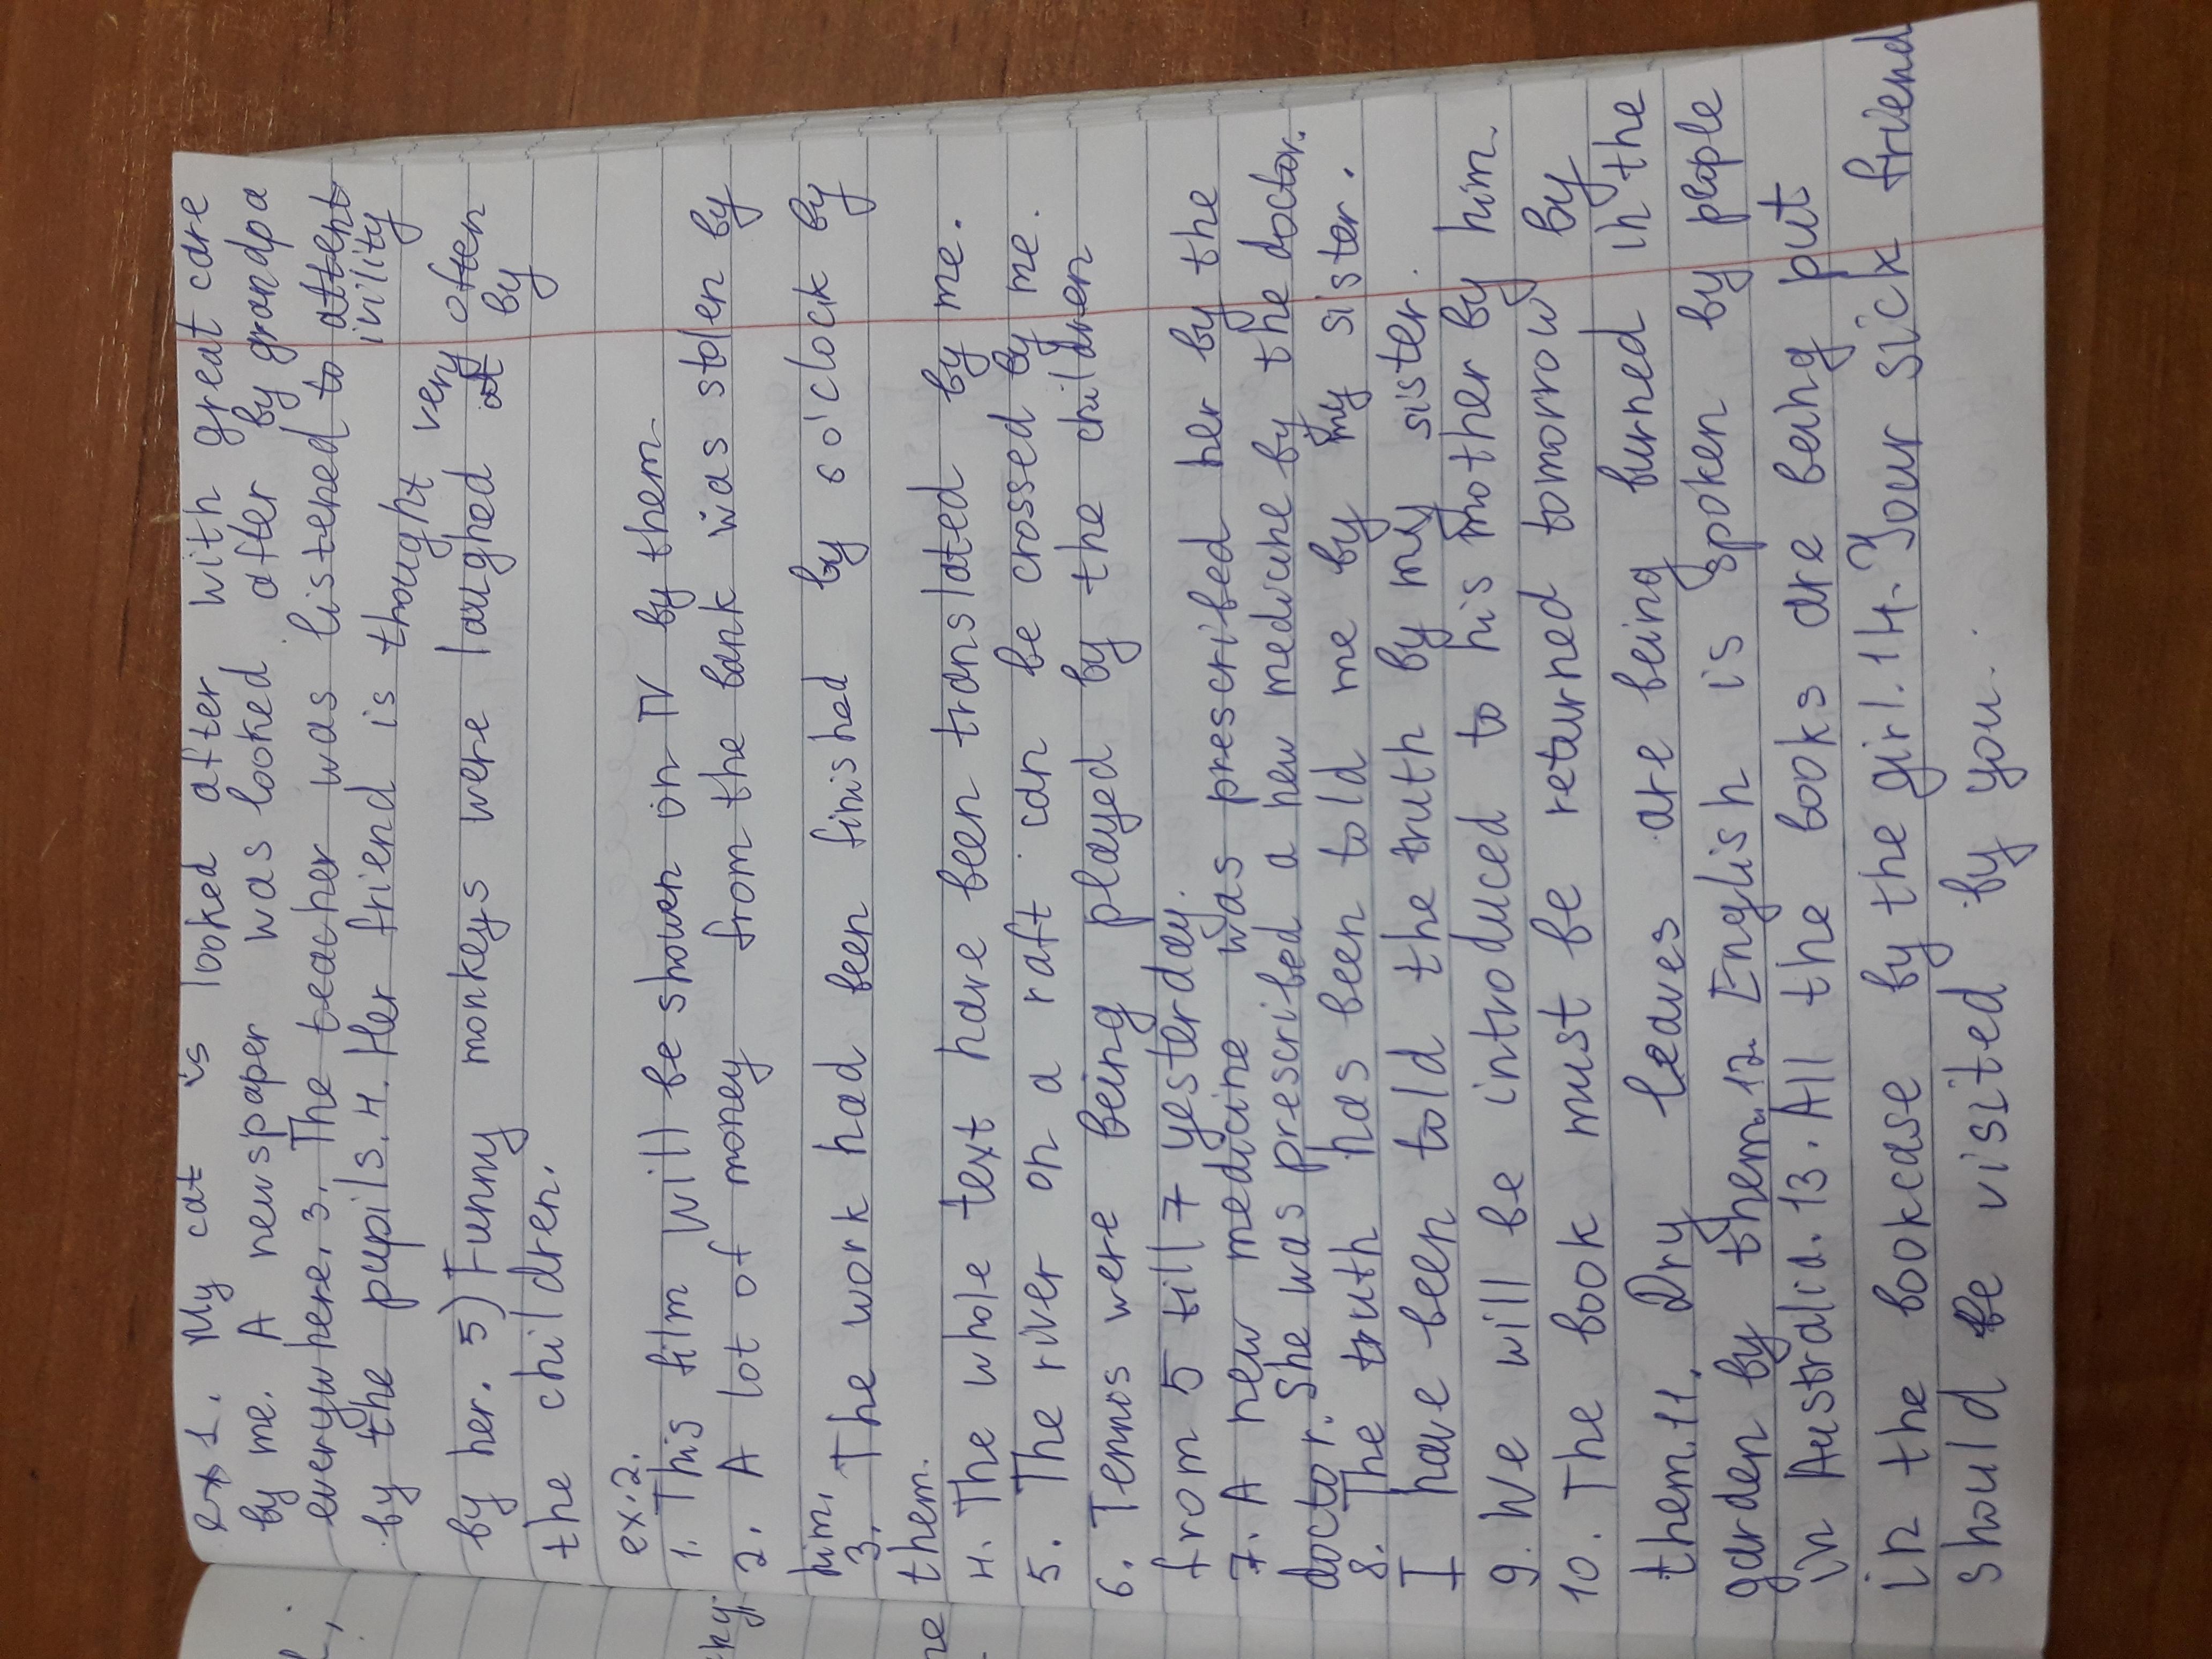 ex 1. My cat is looked after with great care
by me. A newspaper was looked after by grandpa
everywhere. 3. The teacher was listened to attent
ivility
by the pupils. 4. Her friend is thought very often
by her. 5) Funny monkeys were laughed at by
the children.
ex. 2.
1. This film will be shown on TV by them
2. A lot of money from the bank was stolen by
him.
3. The work had been finished by 6 o'clock by
them.
4. The whole text have been translated by me.
5. The river on a raft can be crossed by me.
6. Tennos were being played by the children
from 5 till 7 yesterday.
7. A new medicine was prescribed her by the
doctor. She was prescribed a new medicine by the doctor.
8. The truth has been told me by my sister.
I have been told the truth by my sister.
9. We will be introduced to his mother by him.
10. The book must be returned tomorrow by
them. 11. Dry leaves are being burned in the
garden by them. 12. English is spoken by people
in Australia. 13. All the books are being put
in the bookcase by the girl. 14. Your sick friend
should be visited by you.